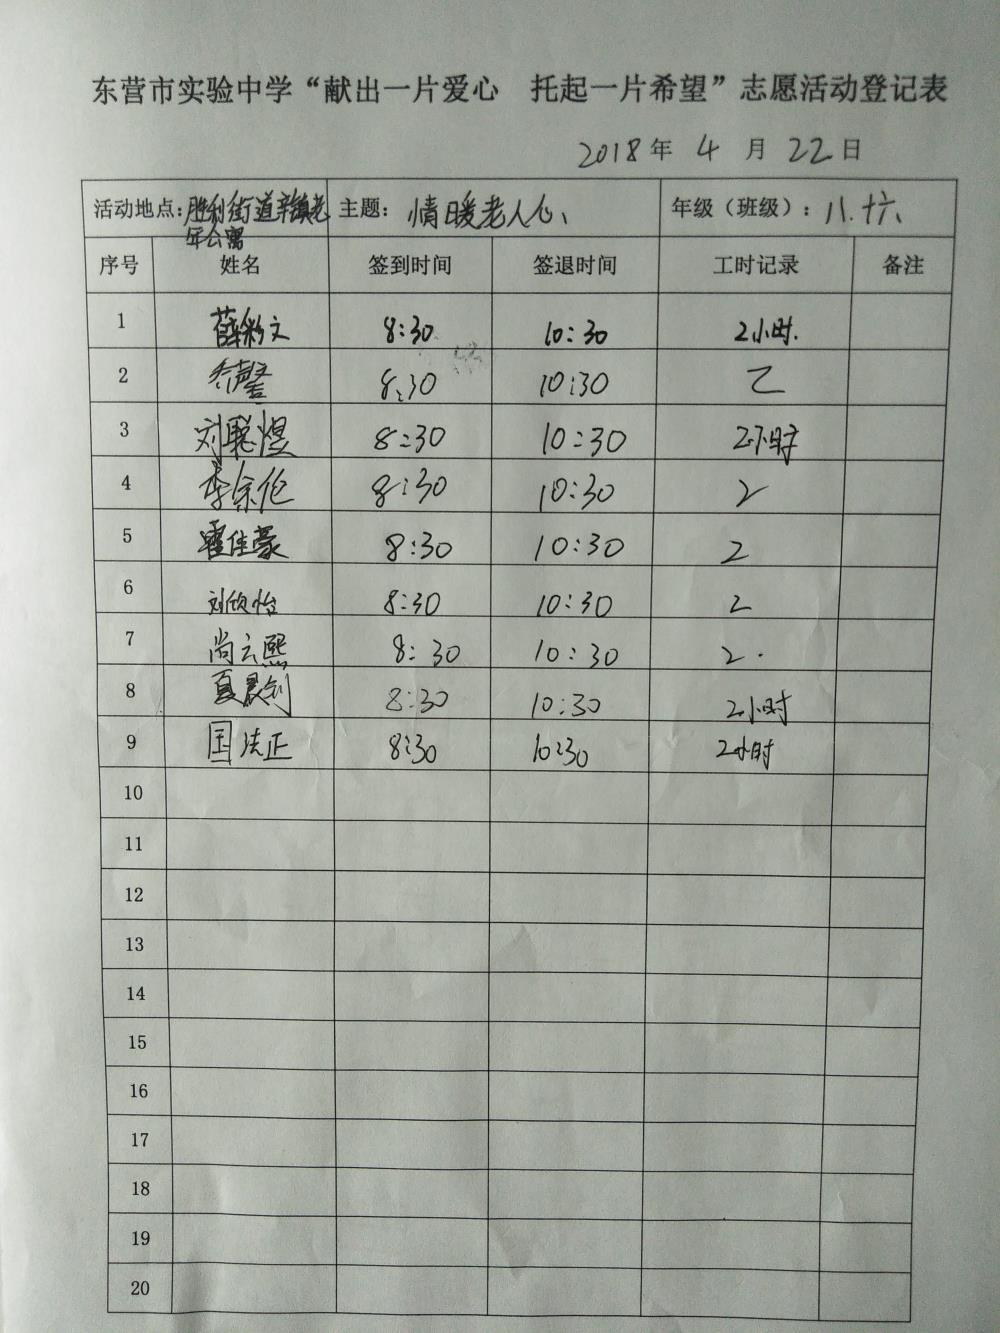 东营市实验中学“献出一片爱心 托起一片希望”志愿活动登记表
2018年 4 月 22日
活动地点:胜利街道辛镇老年公寓 主题: 情暖老人心、 年级（班级）: 八.十六、
序号 姓名 签到时间 签退时间 工时记录 备注
1 薛彩文 8:30 10:30 2小时.
2 8:30 10:30 2
3 刘聪煜 8:30 10:30 2小时
4 李余伦 8:30 10:30 2
5 霍佳豪 8:30 10:30 2
6 刘欣怡 8:30 10:30 2
7 尚云熙 8:30 10:30 2.
8 夏晨剑 8:30 10:30 2小时
9 国法正 8:30 10:30 2小时
10
11
12
13
14
15
16
17
18
19
20